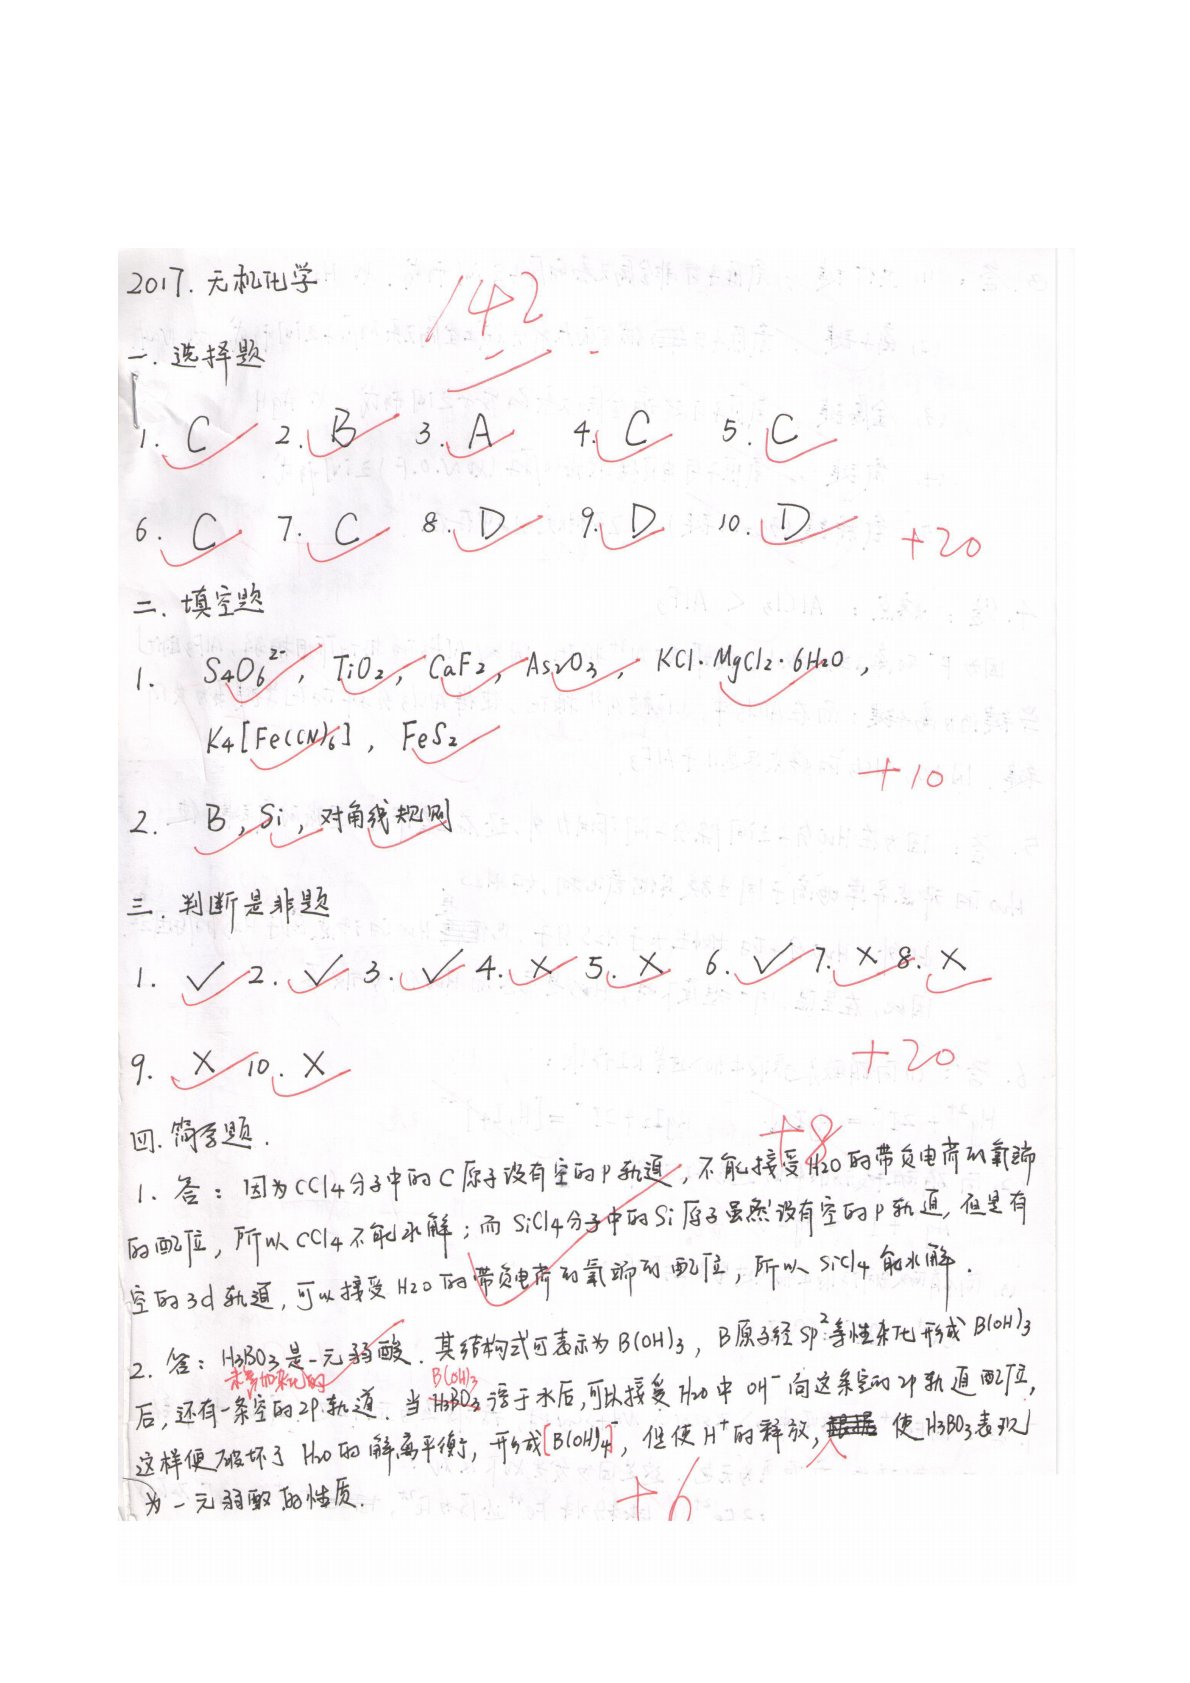 2017. 无机化学
142
一. 选择题
1. C 2. B 3. A 4. C 5. C
6. C 7. C 8. D 9. D 10. D +20
二. 填空题
1. S4O6²⁻, TiO2, CaF2, As2O3, KCl·MgCl2·6H2O,
K4[Fe(CN)6], FeS2
+10
2. B, Si, 对角线规则
三. 判断是非题
1. ✓ 2. ✓ 3. ✓ 4. × 5. × 6. ✓ 7. × 8. ×
9. × 10. × +20
四. 简答题.
+8
1. 答: 因为CCl4分子中的C原子没有空的P轨道, 不能接受H2O的带负电荷的氧端
的配位, 所以CCl4不能水解; 而SiCl4分子中的Si原子虽然没有空的P轨道, 但是有
空的3d轨道, 可以接受H2O的带负电荷的氧端的配位, 所以SiCl4能水解.
2. 答: H3BO3是一元弱酸. 其结构式可表示为B(OH)3, B原子经SP²等性杂化形成B(OH)3
未参加杂化的 B(OH)3
后, 还有一条空的2P轨道. 当H3BO3溶于水后, 可以接受H2O中OH⁻向这条空的2P轨道配位,
这样便破坏了H2O的解离平衡, 形成[B(OH)4]⁻, 但使H⁺的释放, 使H3BO3表现
为一元弱酸的性质.
+6